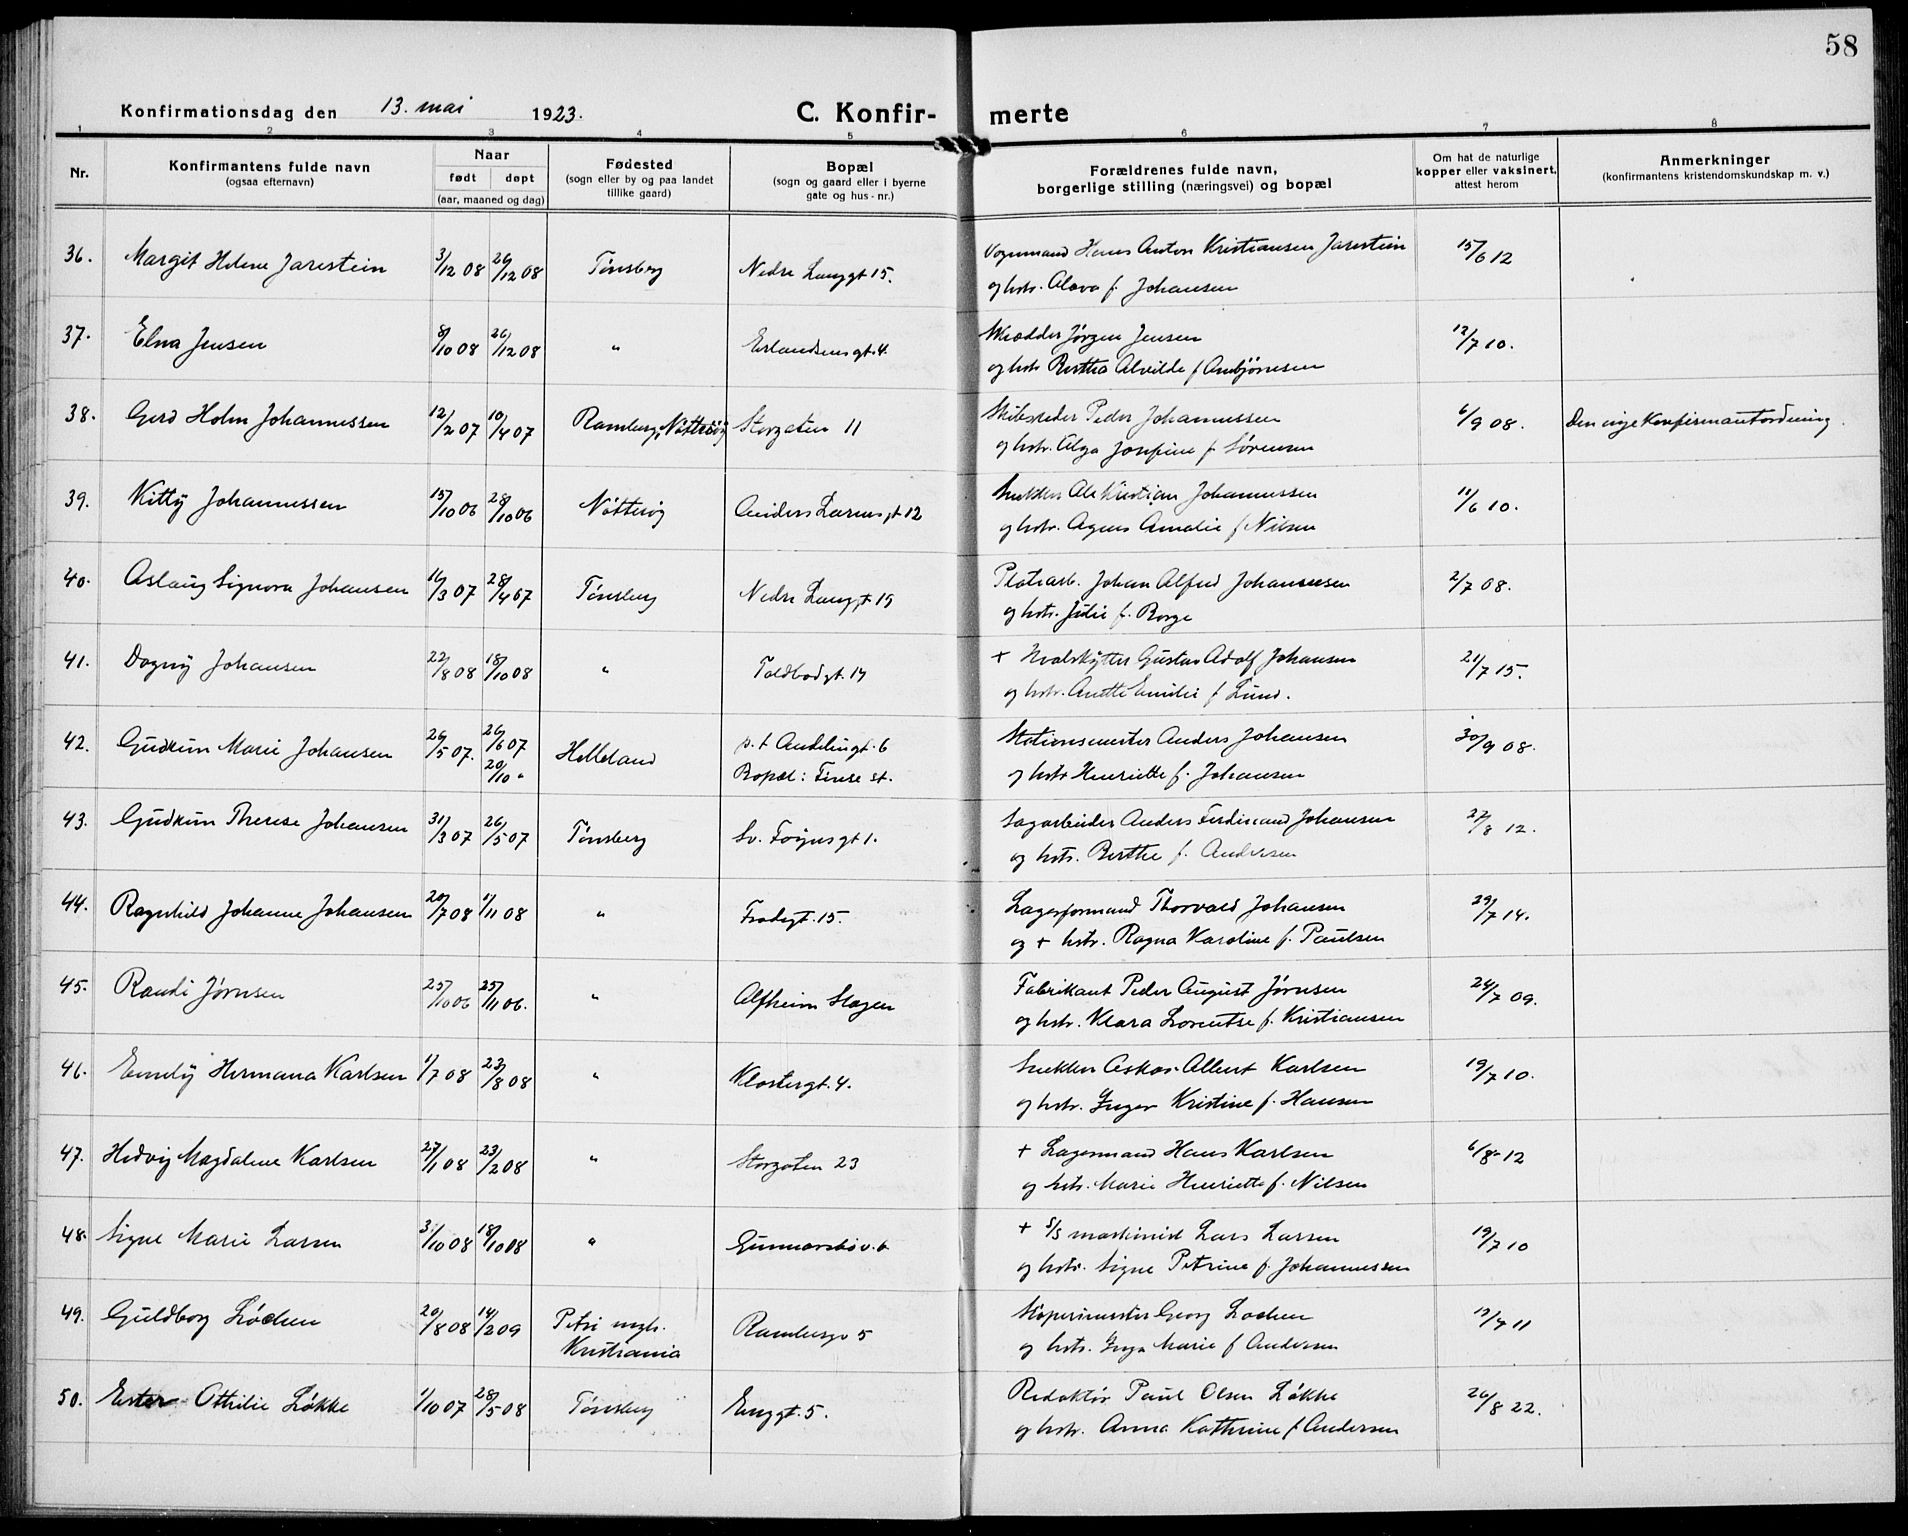 58
Konfirmationsdag den 13. mai 1923. C. Konfir- merte
1 2 3 4 5 6 7 8
Nr.
Konfirmantens fulde navn
(ogsaa efternavn)
Naar
født døpt
(aar, maaned og dag)
Fødested
(sogn eller by og paa landet
tillike gaard)
Bopæl
(sogn og gaard eller i byerne
gate og hus-nr.)
Forældrenes fulde navn,
borgerlige stilling (næringsvei) og bopæl
Om hat de naturlige
kopper eller vaksinert,
attest herom
Anmerkninger
(konfirmantens kristendomskundskap m. v.)
36. Margit Helene Jarestein 3/12 08 26/12 08 Tønsberg Nedre Langgt 15. Vognmand Hans Anton Kristiansen Jarestein 15/6 12
og hstr. Alava f. Johansen
37. Elna Jensen 8/10 08 26/12 08 " Erlandsensgt. 4. Skrædder Jørgen Jensen 12/7 10.
og hstr Bertha Alvilde f Arnbjørnsen
38. Gerd Holm Johannessen 12/2 07 10/4 07 Ramberg, Nøtterøy Storgaten 11 Skibsreder Peder Johannessen 6/9 08. Den nye Konfirmantordning.
og hstr. Olga Josefine f. Sørensen
39. Kitty Johannessen 15/10 06 28/10 06 Nøtterøy Anders Larensgt 12 Snekker Ole Kristian Johannessen 11/6 10.
og hstr. Agnes Amalie f Nilsen
40. Aslaug Signora Johansen 16/3 07 28/4 07 Tønsberg Nedre Langgt 19 Platearb. Johan Alfred Johannesen 2/7 08.
og hstr. Julie f. Borge
41. Dagny Johansen 22/8 08 18/10 08 " Toldbodgt. 14 + Hvalskytter Gustav Adolf Johansen 21/7 15.
og hstr. Anette Emilie f Lund.
42. Gudrun Marie Johansen 26/5 07. 26/6 07 Helleland p.t Andelingt. 6 Stationsmester Anders Johansen 30/9 08.
20/10 " Bopæl: Finse st. og hstr Henriette f. Johansen
43. Gudrun Therese Johansen 31/3 07 26/5 07 Tønsberg Sv. Foynsgt 1. Sagarbeider Anders Ferdinand Johansen 27/8 12.
og hstr. Berthe f. Andersen
44. Ragnhild Johanne Johansen 20/7 08 1/11 08 " Frodegt. 15. Lagerformand Thorvald Johansen 29/7 14.
og + hstr. Ragna Karoline f. Paulsen
45. Randi Jørnsen 25/10 06 25/11 06. " Alfheim Slagen Fabrikant Peder August Jørnsen 24/7 09.
og hstr. Klara Lorentse f. Kristiansen
46. Emely Hermana Karlsen 1/7 08 23/8 08 " Klostergt. 4. Snekker Oskar Albert Karlsen 19/7 10.
og hstr. Inger Kristine f. Hansen
47. Hedvig Magdalene Karlsen 27/1 08 23/2 08 " Storgaten 23 + Lagermand Hans Karlsen 6/8-12
og hstr. Marie Henriette f. Nilsen
48. Signe Marie Larsen 3/10 08 18/10 08 " Gunnarsbøv. 6 + S/S maskinist Lars Larsen 19/7 10
og hstr. Signe Petrine f. Johannessen
49. Guldborg Løchen 20/8 08 14/2 09 Petri mgh. Rambergv 5 Skipsrimester Georg Lochen 12/7 11
Kristiania og hstr. Inga Marie f Andersen
50. Ester Othilie Løkke 1/10 07 28/5 08 Tønsberg Enggt. 5. Redaktør Paul Olsen Løkke 26/8 22.
og hstr. Anna Kathrine f Andersen